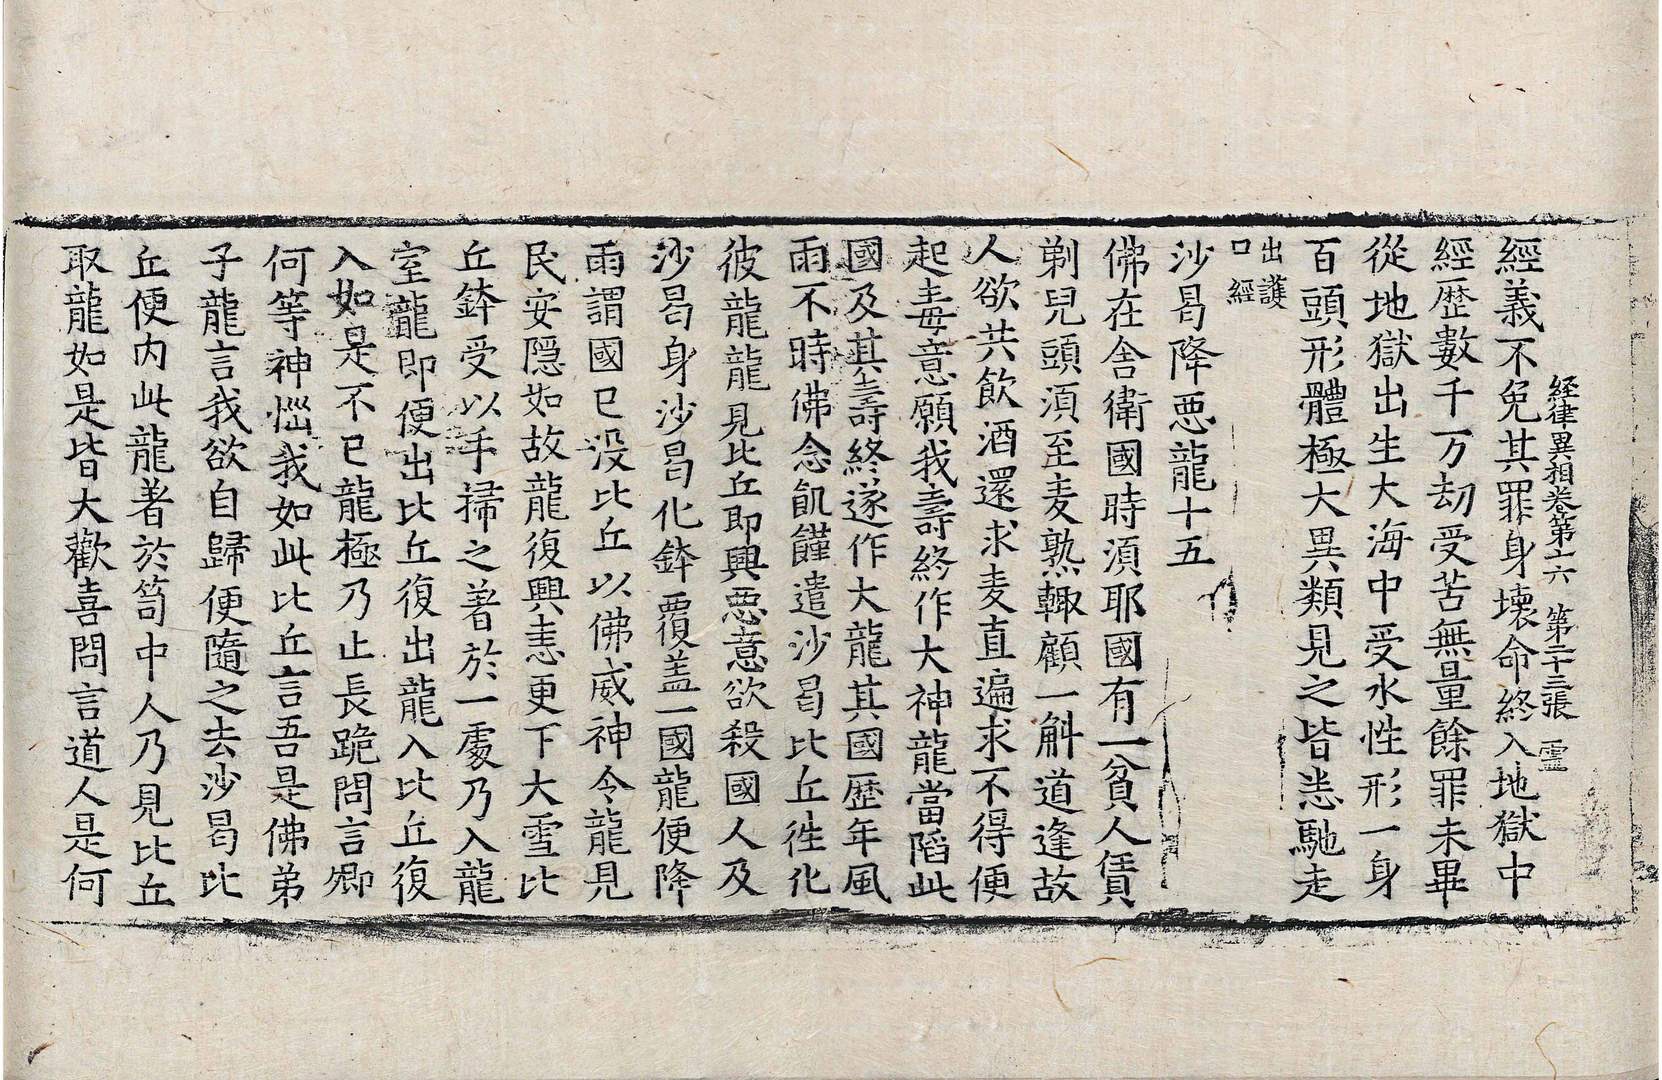 経律異相卷第六　第二十三張　靈
經義不免其罪身壞命終入地獄中
經歷數千万劫受苦無量餘罪未畢
從地獄出生大海中受水性形一身
百頭形體極大異類見之皆恚馳走
出護
口經
沙曷降惡龍十五
佛在舍衛國時湏耶國有一貧人賃
剃兒頭湏至麦熟輙顧一斛道逢故
人欲共飲酒還求麦直遍求不得便
起毒意願我壽終作大神龍當陷此
國及其壽終遂作大龍其國歷年風
雨不時佛念飢饉遣沙曷比丘徃化
彼龍龍見比丘即興惡意欲殺國人及
沙曷身沙曷化鉢覆盖一國龍便降
雨謂國已没比丘以佛威神令龍見
民安隱如故龍復興恚更下大雪比
丘鉢受以手掃之著於一處乃入龍
室龍即便出比丘復出龍入比丘復
入如是不已龍極乃止長跪問言卿
何等神惱我如此比丘言吾是佛弟
子龍言我欲自歸便隨之去沙曷比
丘便内此龍著於笥中人乃見比丘
取龍如是皆大歡喜問言道人是何